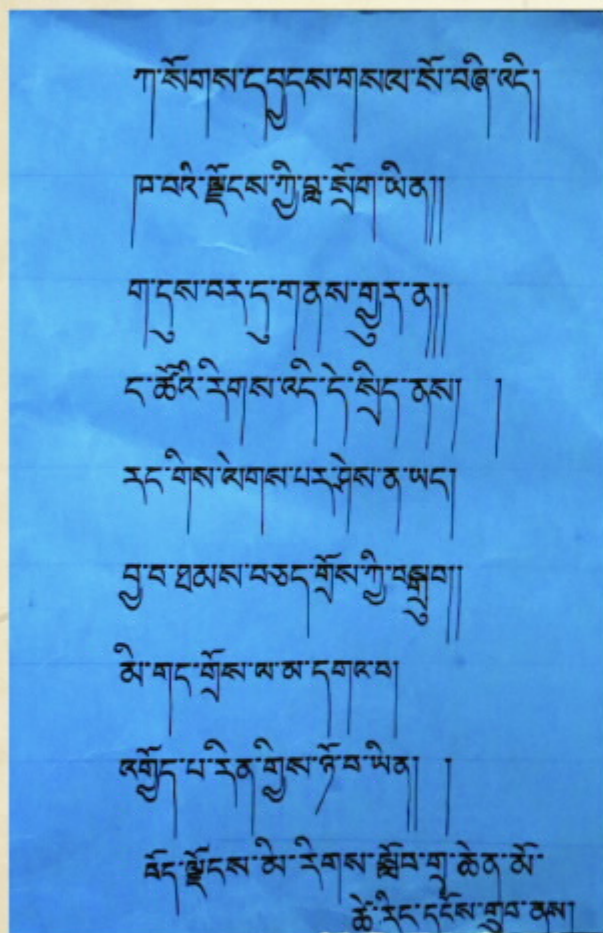 ཀ་སོགས་དབྱངས་གསལ་སོ་བཞི་འདི།
ཁ་བའི་ལྗོངས་ཀྱི་བླ་སྲོག་ཡིན།།
ག་དུས་བར་དུ་གནས་གྱུར་ན།།
ང་ཚོའི་རིགས་འདི་དེ་སྲིད་ནས། །
རང་གིས་ལེགས་པར་ཤེས་ན་ཡང།
བྱ་བ་ཐམས་བཅད་གྲོས་ཀྱི་བསྒྲུབ།།
མི་གང་གྲོས་ལ་མ་དགའ་བ།
འགྱོད་པ་རིན་གྱིས་ཉོ་བ་ཡིན།། །
བོད་ལྗོངས་མི་རིགས་སློབ་གྲྭ་ཆེན་མོ་
ཚེ་རིང་དངོས་གྲུབ་ནས།